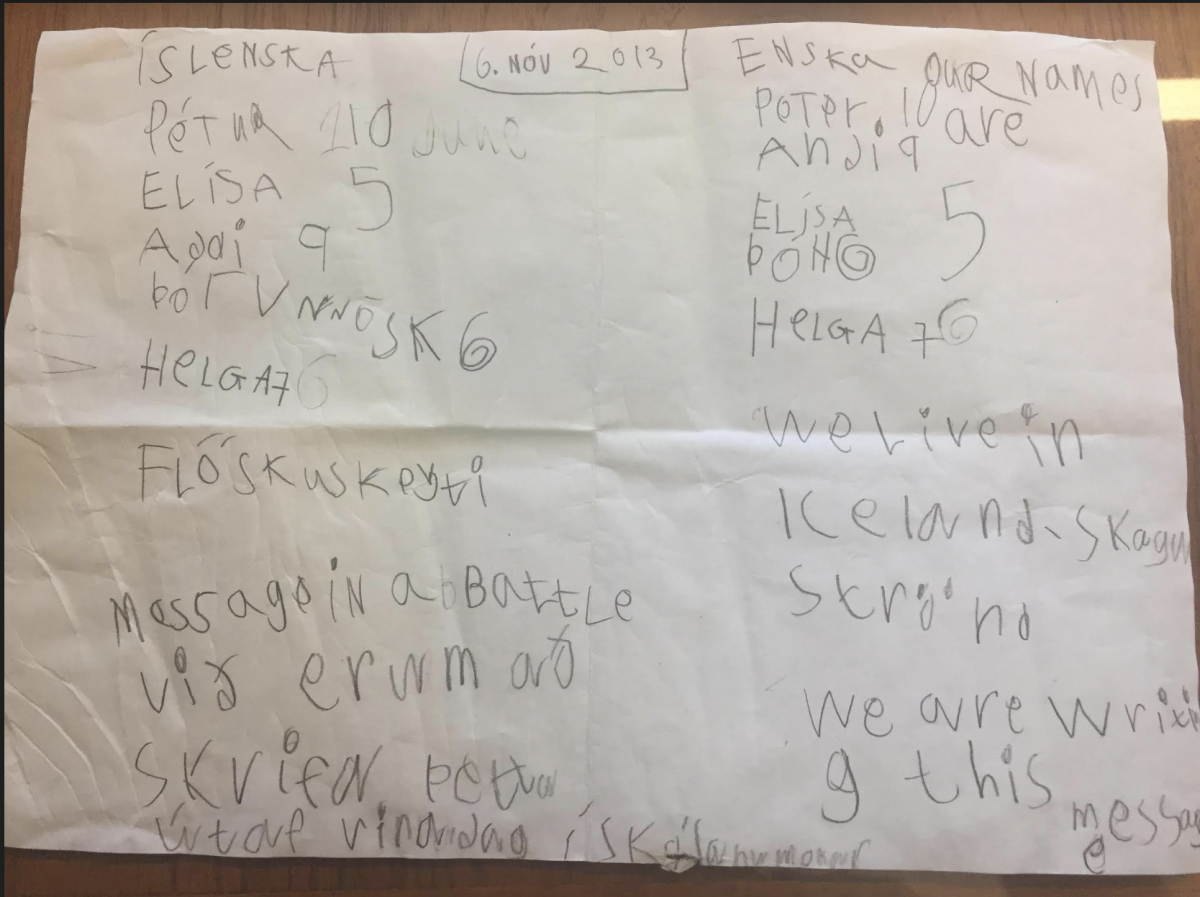 ÍSLENSKA
6. NÓV 2013
Pétur 10
ELÍSA 5
Addi 9
ÞÓr UNNÓSK 6
HELGA 7
FLÖSKUSKeyti
Message iN a BattLE
við erum að
SKrifa þetta
útaf vinadag í SKólanum okkar
ENSKa OUR NAMES
PeTer. 10 are
ANdi 9
ELíSA 5
ÞÓR 6
HeLGA 7
We Live in
Iceland, Skaga
Strönd
We are writin
g this
messag
e